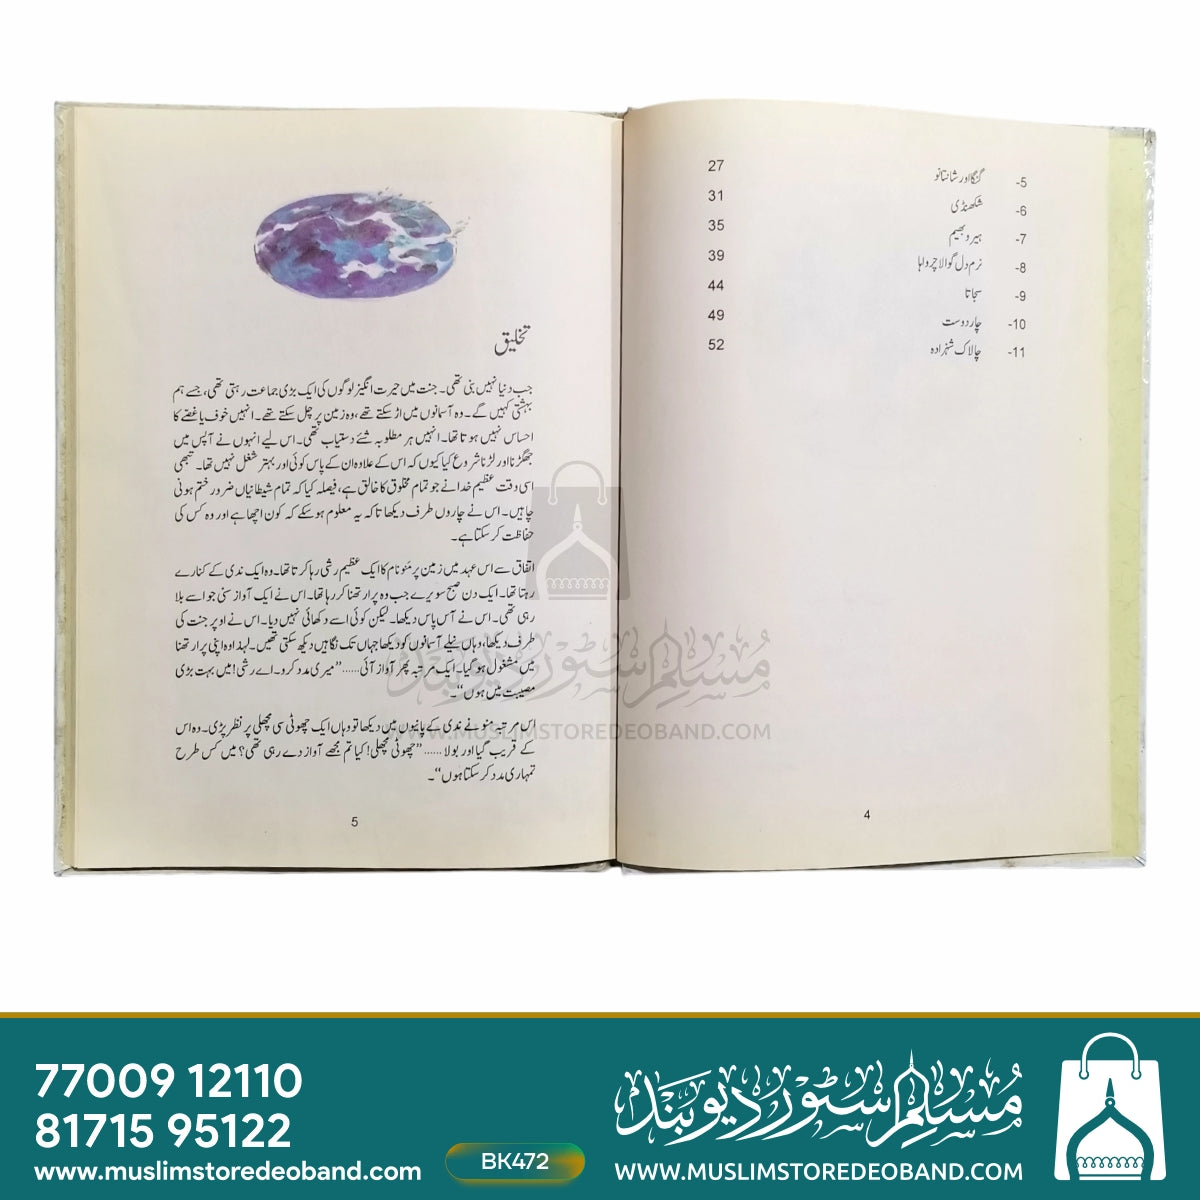 5- گنگا اور شانتانو 27
6- شکھنڈی 31
7- ہیرو بھیم 35
8- نرم دل گوالا چرواہا 39
9- سجاتا 44
10- چار دوست 49
11- چالاک شہزادہ 52
4
تخلیق
جب دنیا نہیں بنی تھی۔ جنت میں حیرت انگیز لوگوں کی ایک بڑی جماعت رہتی تھی، جسے ہم
بہشتی کہیں گے۔ وہ آسمانوں میں اڑ سکتے تھے، وہ زمین پر چل سکتے تھے۔ انہیں خوف یا غصے کا
احساس نہیں ہوتا تھا۔ انہیں ہر مطلوبہ شئے دستیاب تھی۔ اس لیے انہوں نے آپس میں
جھگڑنا اور لڑنا شروع کیا کیوں کہ اس کے علاوہ ان کے پاس کوئی اور بہتر شغل نہیں تھا۔ تبھی
اسی وقت عظیم خدا نے جو تمام مخلوق کا خالق ہے، فیصلہ کیا کہ تمام شیطانیاں ضرور ختم ہونی
چاہیں۔ اس نے چاروں طرف دیکھا تاکہ یہ معلوم ہو سکے کہ کون اچھا ہے اور وہ کس کی
حفاظت کر سکتا ہے۔
اتفاق سے اس عہد میں زمین پر مَنو نام کا ایک عظیم رشی رہا کرتا تھا۔ وہ ایک ندی کے کنارے
رہتا تھا۔ ایک دن صبح سویرے جب وہ پرارتھنا کر رہا تھا۔ اس نے ایک آواز سنی جو اسے بلا
رہی تھی۔ اس نے آس پاس دیکھا۔ لیکن کوئی اسے دکھائی نہیں دیا۔ اس نے اوپر جنت کی
طرف دیکھا، وہاں نیلے آسمانوں کو دیکھا جہاں تک نگاہیں دیکھ سکتی تھیں۔ لہذا وہ اپنی پرارتھنا
میں مشغول ہو گیا۔ ایک مرتبہ پھر آواز آئی...... ”میری مدد کرو۔ اے رشی! میں بہت بڑی
مصیبت میں ہوں“۔
اس مرتبہ منو نے ندی کے پانیوں میں دیکھا تو وہاں ایک چھوٹی سی مچھلی پر نظر پڑی۔ وہ اس
کے قریب گیا اور بولا...... ”چھوٹی مچھلی! کیا تم مجھے آواز دے رہی تھی؟ میں کس طرح
تمہاری مدد کر سکتا ہوں“۔
5
مسلم سٹور دیوبند
WWW.MUSLIMSTOREDEOBAND.COM
77009 12110
81715 95122
www.muslimstoredeoband.com
BK472
مسلم سٹور دیوبند
WWW.MUSLIMSTOREDEOBAND.COM